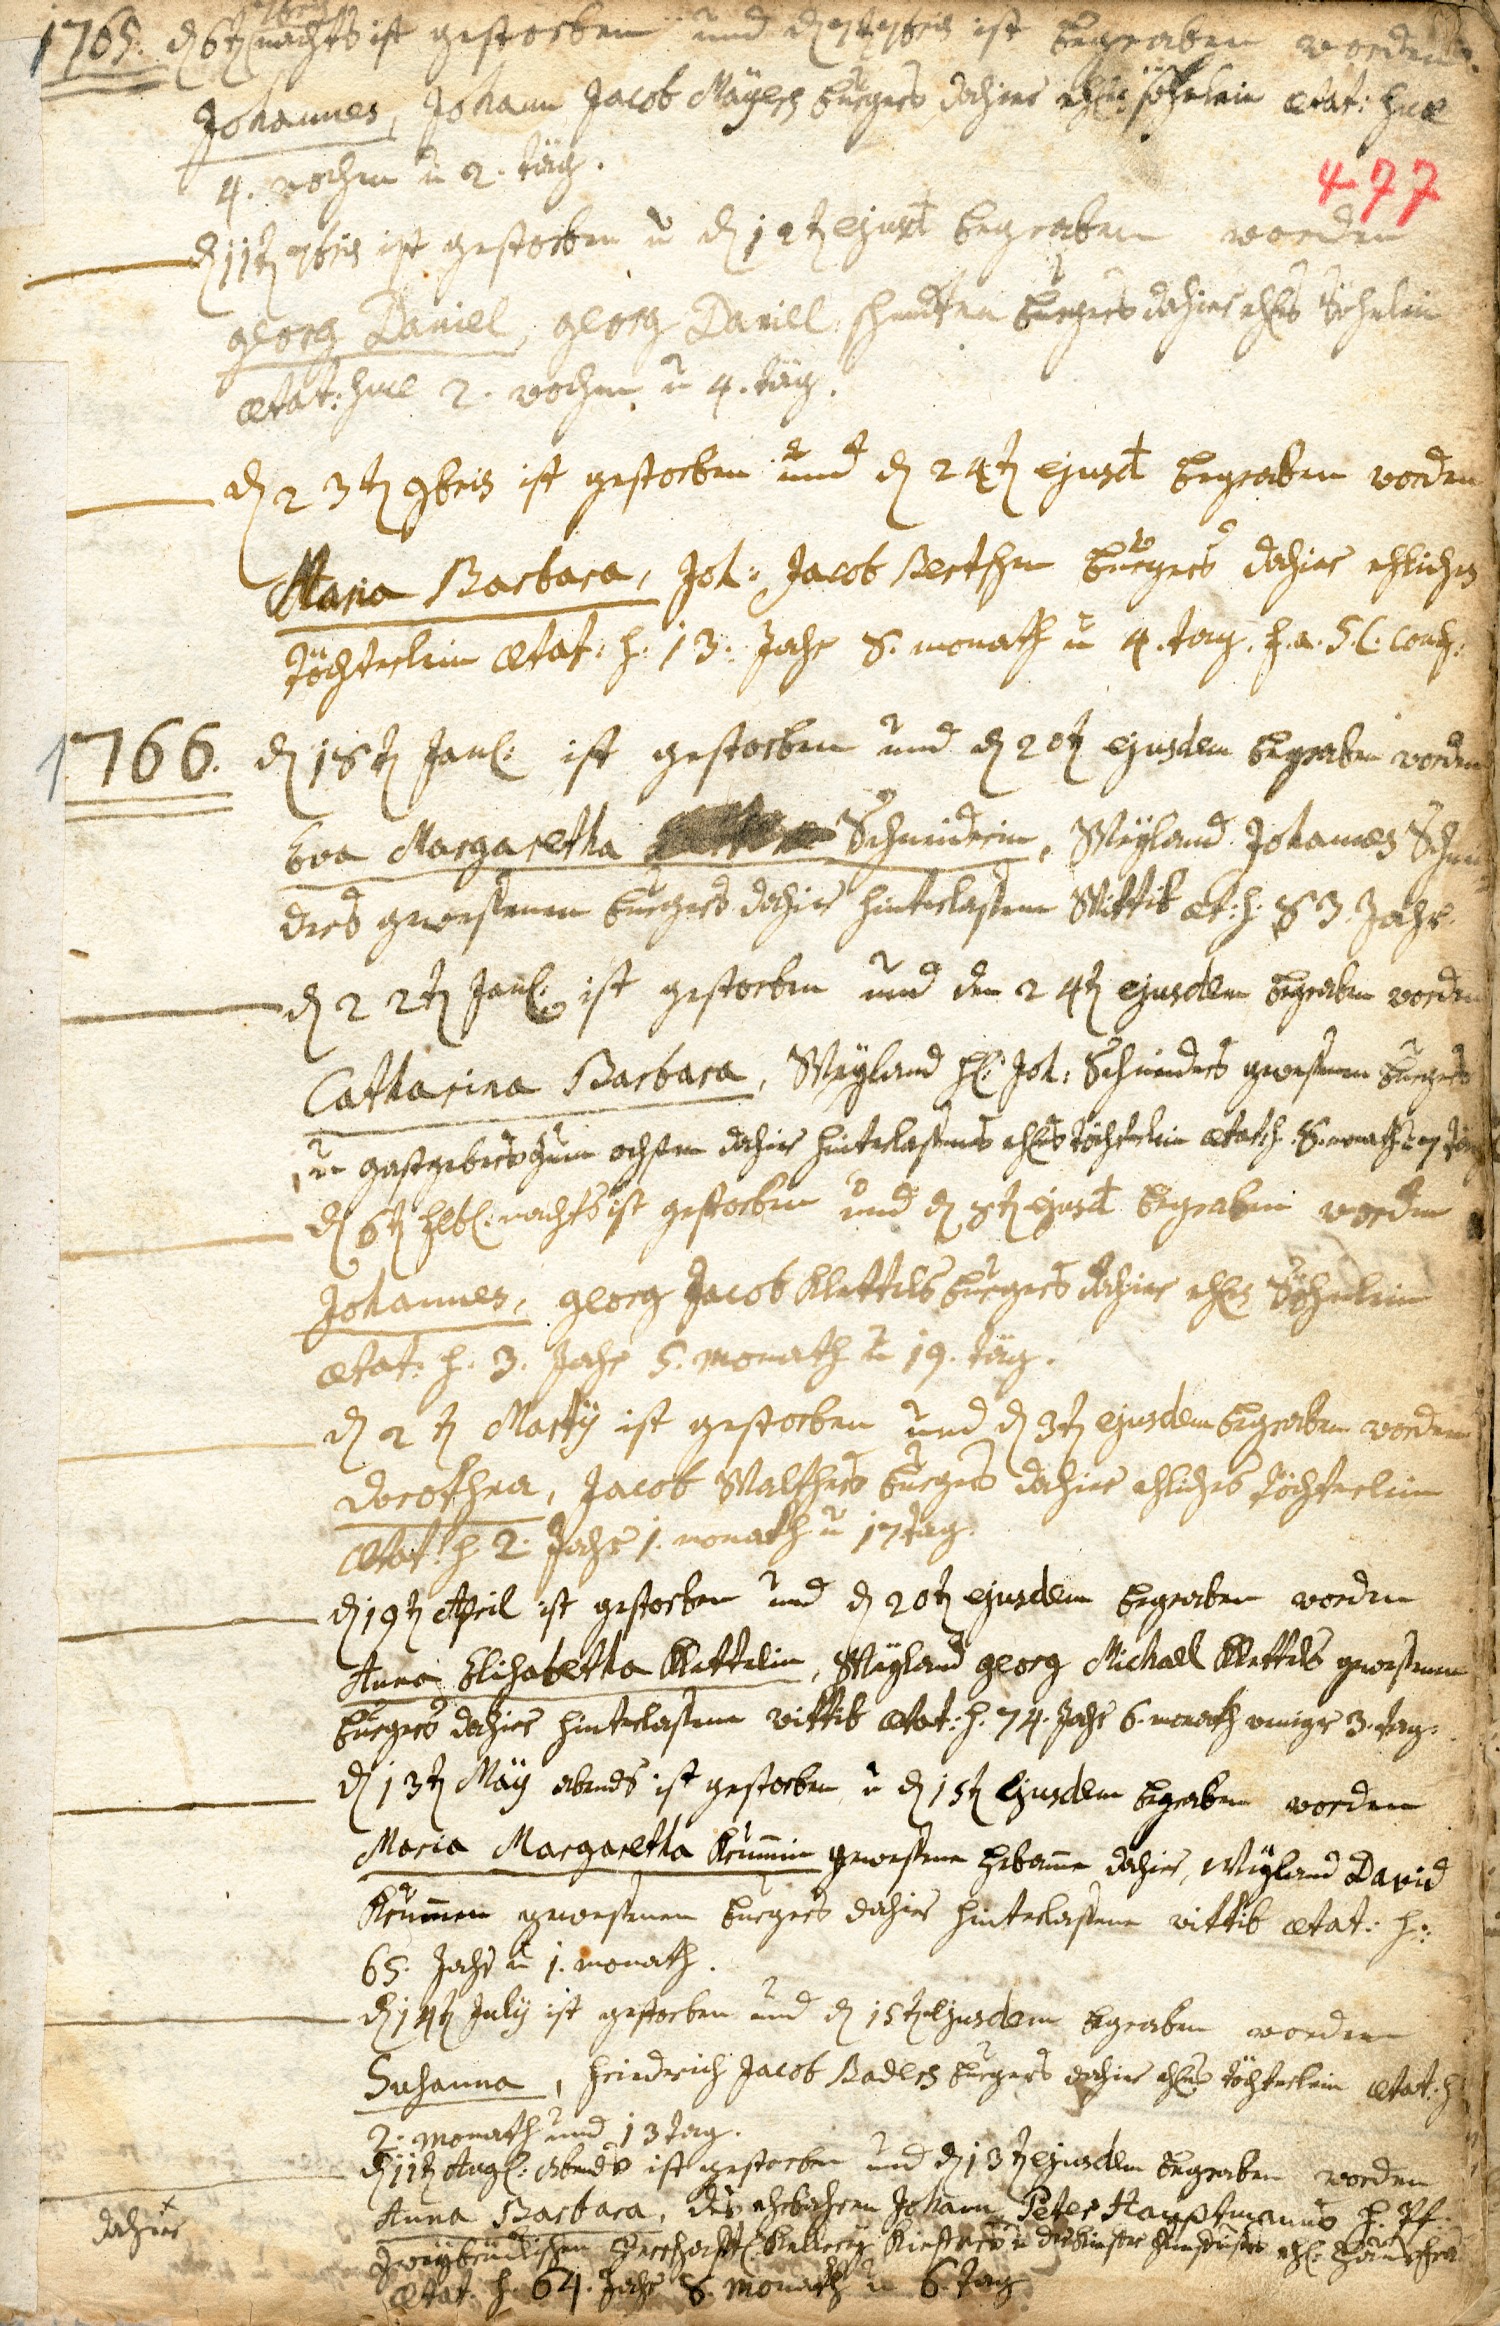 1765. d 6t 7bris nachts ist gestorben und d 7t 7bris ist begraben worden.
Johannes, Johann Jacob Mäyers burgers dahier ehl: söhnlein ætat: suæ
4. wochen u 2. täg.
477
d 11t 7bris ist gestorben u d 12t ejusd begraben worden
georg Daniel, georg Daniel burgers dahier ehls Söhnlein
ætat: suæ 2. wochen u 4. täg.
d 23t 9bris ist gestorben und d 24t ejusd begraben worden
Maria Barbara, Joh: Jacob burgers dahier ehliches
töchterlein ætat: s. 13. Jahr 8. monath u 4. tag.
1766. d 18t Jan: ist gestorben und d 20t ejusdem begraben worden
Eva Margaretha Schneiderin, Weyland Johannes Schnei
ders gewesenen burgers dahier hinterlassene Wittib æt: s: 83. Jahr.
d 22t Jan: ist gestorben und den 24t ejusdem begraben worden
Catharina Barbara, Weyland H: Joh: Schneiders gewesenen burgers
u gastgebers zum ochsen dahier hinterlassenes ehls töchterlein ætat s. 8. monath 7 täg
d 6t febr: nachts ist gestorben und d 8t ejusd begraben worden
Johannes, georg Jacob Klettels burgers dahier ehls Söhnlein
ætat: s. 3. Jahr 5. monath u 19. täg.
d 2t Martÿ ist gestorben und d 3t ejusdem begraben worden
dorothea, Jacob Walthers burgers dahier ehliches töchterlein
ætat: s 2. Jahr 1. monath u 17 tag.
d 19t April ist gestorben und d 20t ejusdem begraben worden
Anna Elisabetha Klettelin, Weyland georg Michael Klettels gewesenen
burgers dahier hinterlassene wittib ætat: s. 74. Jahr 6. monath weniger 3. tag.
d 13t Mäÿ abends ist gestorben u d 15t ejusdem begraben worden
Maria Margaretha Krummin gewesene hebamme dahier, Weyland David
Krummen gewesenen burgers dahier hinterlassene wittib ætat: s:
65. Jahr u 1. monath.
d 14t Julÿ ist gestorben und d 15t ejusdem begraben worden
Susanna, friedrich Jacob Baders burgers dahier ehls töchterlein ætat: s
2. monath und 13 tag.
d 11t Aug: Abends ist gestorben und d 13t ejusdem begraben worden
Anna Barbara, des ehrbahren Johann Peter Hauptmanns h. Pf.
dahier
Zweybrückischen Herrschafftl: Kellerey Kiefers u ehl: haußfrau
ætat. s. 64. Jahr 8. monath u 6. tag